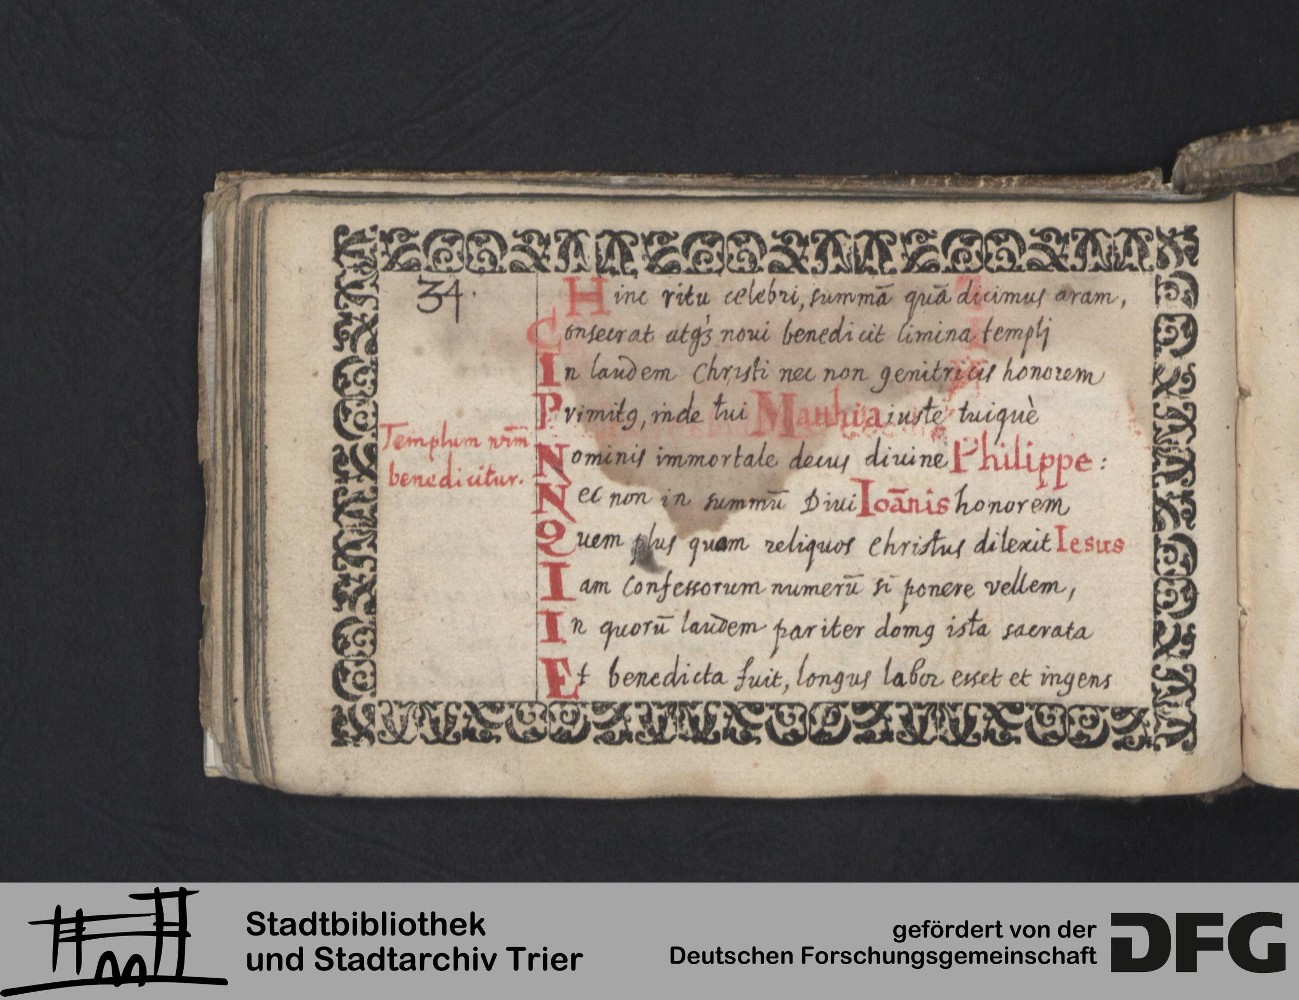 34.
Hinc ritu celebri, summā quā dicimus aram,
Consecrat atq3 noui benedicit limina templi
In laudem Christi nec non genitricis honorem
Primitꝰ, inde tui Matthia iuste tuiquè
Templum nr̄m
benedicitur.
Nominis immortale decus diuine Philippe:
Nec non in summū Diui Ioānis honorem
Quem plus quam reliquos Christus dilexit Iesus
Iam Confessorum numerū si ponere vellem,
In quorū laudem pariter domꝰ ista sacrata
Et benedicta fuit, longus labor esset et ingens
Stadtbibliothek
und Stadtarchiv Trier
gefördert von der
Deutschen Forschungsgemeinschaft
DFG